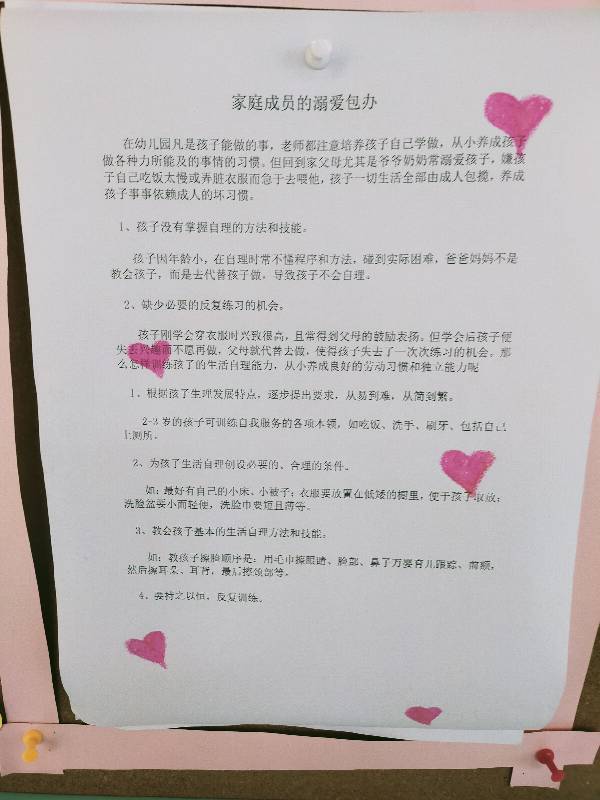 家庭成员的溺爱包办
在幼儿园凡是孩子能做的事，老师都注意培养孩子自己学做，从小养成孩子
做各种力所能及的事情的习惯。但回到家父母尤其是爷爷奶奶常溺爱孩子，嫌孩
子自己吃饭太慢或弄脏衣服而急于去喂他，孩子一切生活全部由成人包揽，养成
孩子事事依赖成人的坏习惯。
1、孩子没有掌握自理的方法和技能。
孩子因年龄小，在自理时常不懂程序和方法，碰到实际困难，爸爸妈妈不是
教会孩子，而是去代替孩子做，导致孩子不会自理。
2、缺少必要的反复练习的机会。
孩子刚学会穿衣服时兴致很高，且常得到父母的鼓励表扬。但学会后孩子便
失去兴趣而不愿再做，父母就代替去做，使得孩子失去了一次次练习的机会。那
么怎样训练孩子的生活自理能力，从小养成良好的劳动习惯和独立能力呢
1、根据孩子生理发展特点，逐步提出要求，从易到难，从简到繁。
2-3岁的孩子可训练自我服务的各项本领，如吃饭、洗手、刷牙、包括自己
上厕所。
2、为孩子生活自理创设必要的、合理的条件。
如：最好有自己的小床、小被子；衣服要放置在低矮的橱里，便于孩子取放；
洗脸盆要小而轻便，洗脸巾要短且薄等。
3、教会孩子基本的生活自理方法和技能。
如：教孩子擦脸顺序是：用毛巾擦眼睛、脸部、鼻子万婴育儿跟踪、前额，
然后擦耳朵、耳背，最后擦颈部等。
4、要持之以恒，反复训练。